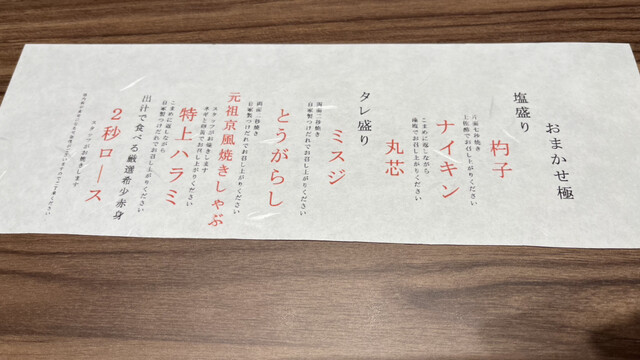 おまかせ極
塩盛り
杓子
片面七秒焼き
ナイキン
こまめに返しながら
丸芯
タレ盛り
ミスジ
両面三秒焼き
自家製つけだれでお召し上がりください
とうがらし
両面三秒焼き
自家製つけだれでお召し上がりください
元祖京風焼きしゃぶ
スタッフがお焼きします
ネギと卵黄でお召し上がりください
特上ハラミ
こまめに返しながら
自家製つけだれでお召し上がりください
出汁で食べる厳選希少赤身
2秒ロース
スタッフがお焼きします